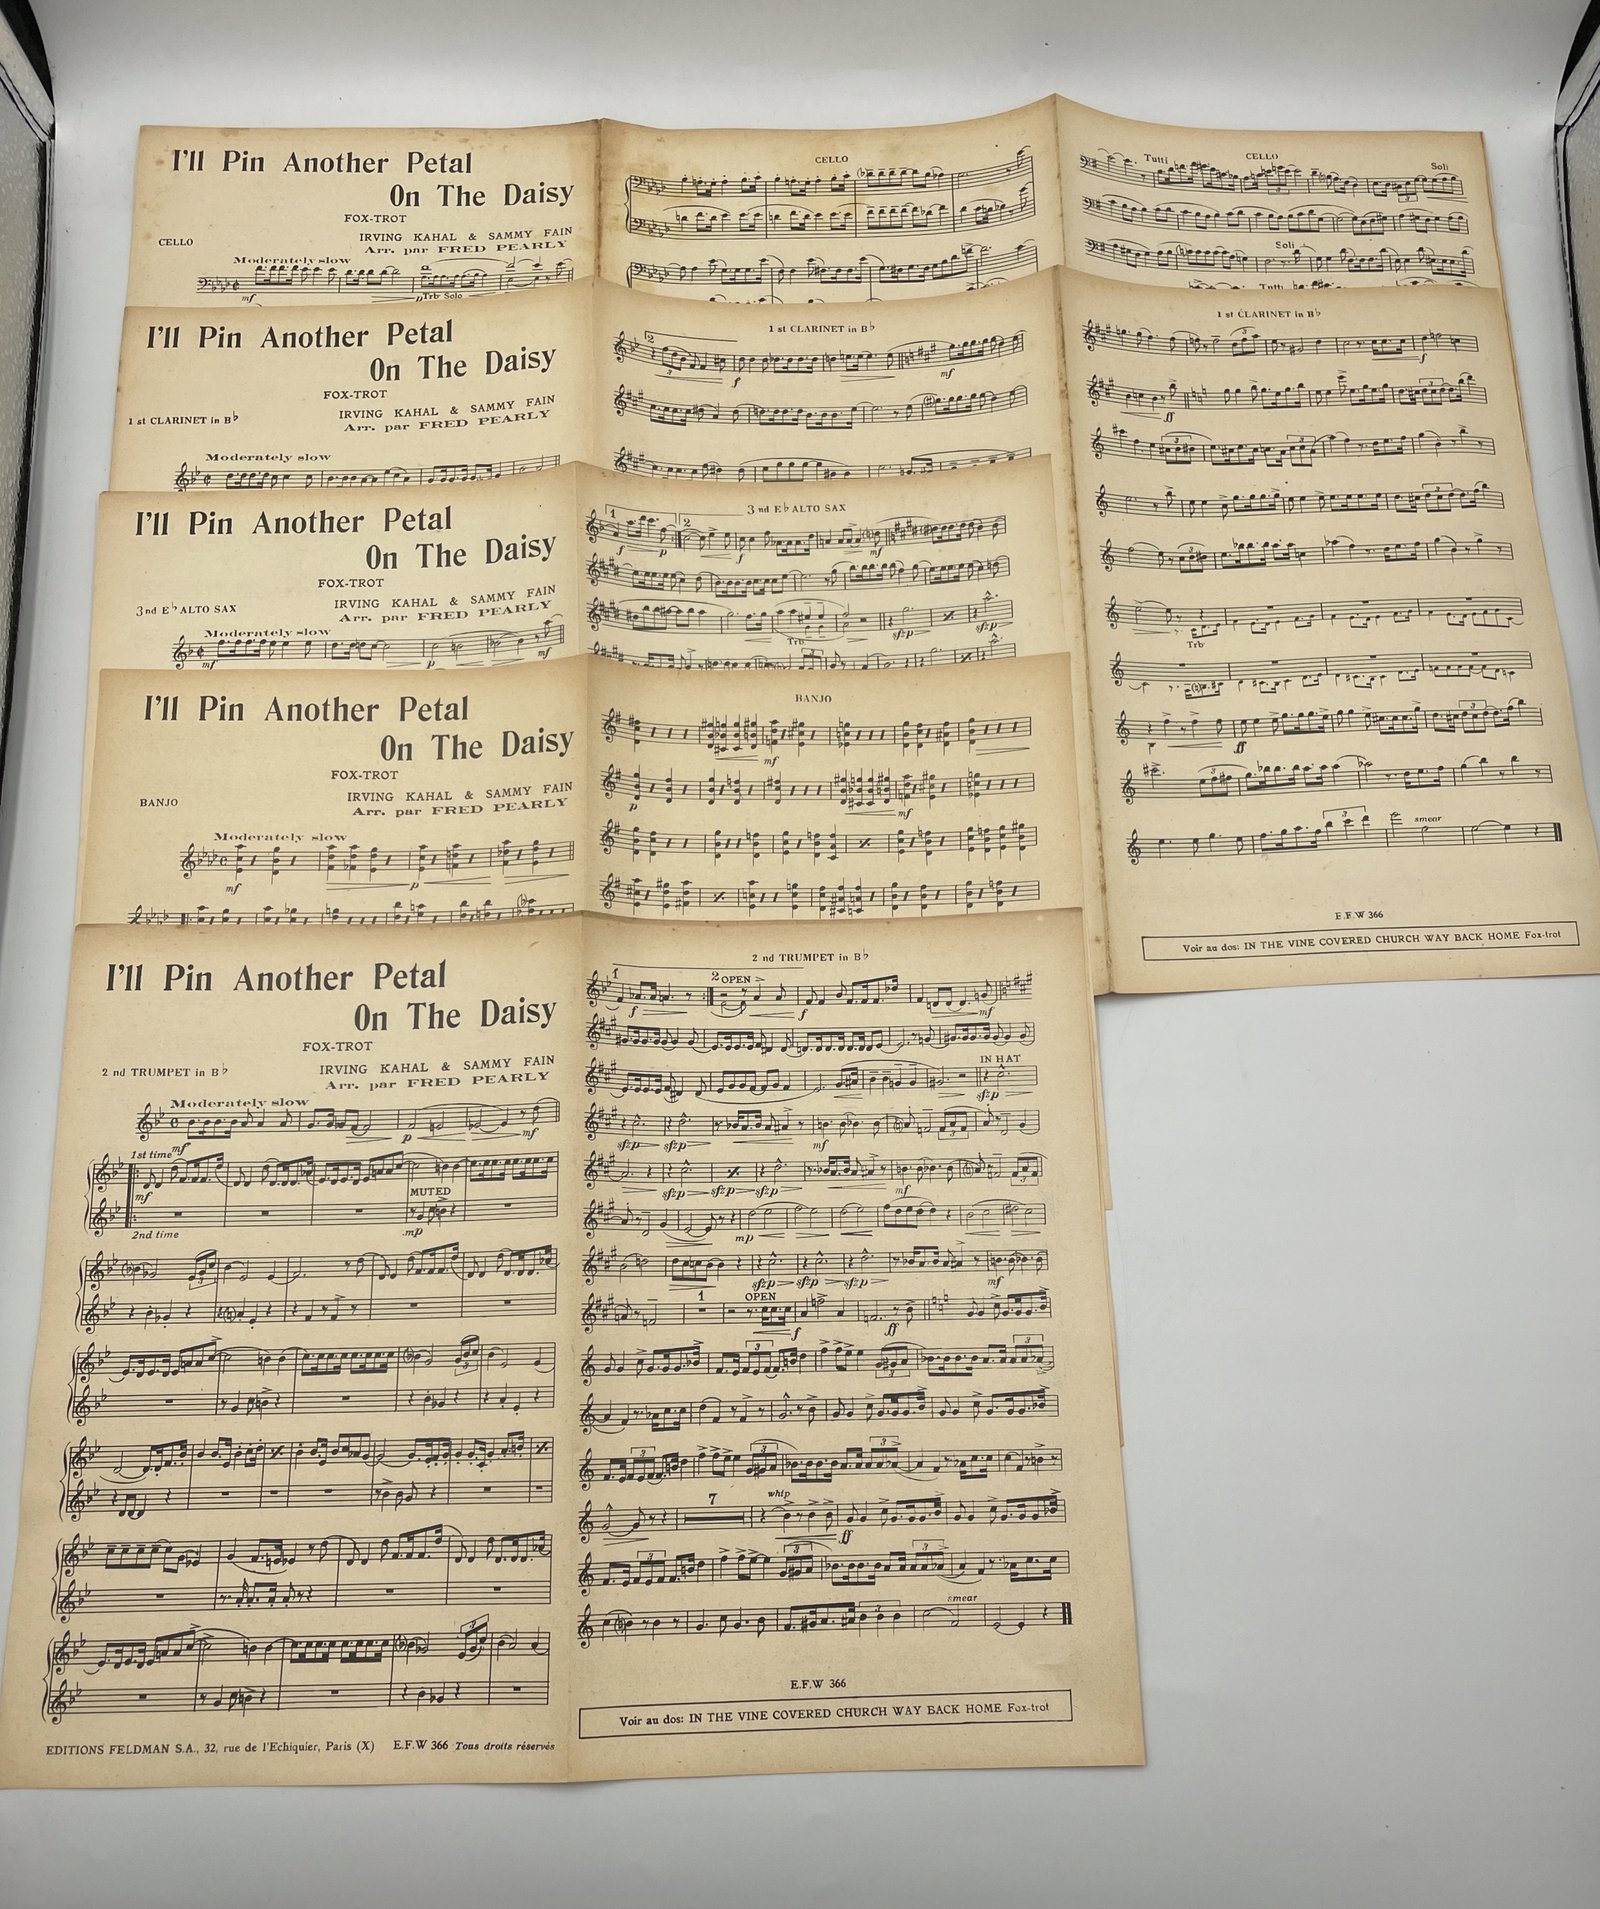 I'll Pin Another Petal
On The Daisy
FOX-TROT
CELLO
IRVING KAHAL & SAMMY FAIN
Arr. par FRED PEARLY
Moderately slow
mf
p
Trb Solo
CELLO
Tutti
CELLO
Soli
Soli
Tutti
I'll Pin Another Petal
On The Daisy
FOX-TROT
1 st CLARINET in B♭
IRVING KAHAL & SAMMY FAIN
Arr. par FRED PEARLY
Moderately slow
1 st CLARINET in B♭
2
f
mf
1 st CLARINET in B♭
3
f
3
ff
3
3
3
3
Trb
p
ff
3
3
3
smear
E.F.W 366
Voir au dos: IN THE VINE COVERED CHURCH WAY BACK HOME Fox-trot
I'll Pin Another Petal
On The Daisy
FOX-TROT
3 nd E♭ ALTO SAX
IRVING KAHAL & SAMMY FAIN
Arr. par FRED PEARLY
Moderately slow
mf
p
mf
3 nd E♭ ALTO SAX
1
2
f
p
f
mf
Trb
sfzp
sfzp
I'll Pin Another Petal
On The Daisy
FOX-TROT
BANJO
IRVING KAHAL & SAMMY FAIN
Arr. par FRED PEARLY
Moderately slow
mf
p
BANJO
mf
p
mf
I'll Pin Another Petal
On The Daisy
FOX-TROT
2 nd TRUMPET in B♭
IRVING KAHAL & SAMMY FAIN
Arr. par FRED PEARLY
Moderately slow
mf
p
mf
1st time
mf
MUTED
2nd time
mp
3
3
3
EDITIONS FELDMAN S.A., 32, rue de l'Echiquier, Paris (X) E.F.W 366 Tous droits réservés
2 nd TRUMPET in B♭
1
2 OPEN
f
f
mf
IN HAT
sfzp
sfzp sfzp mf
3
sfzp sfzp sfzp mf
3
mp
sfzp sfzp sfzp mf
1 OPEN
f ff
3 3 3
3 3 3
7 whip
ff
3 3 3
smear
3
E.F.W 366
Voir au dos: IN THE VINE COVERED CHURCH WAY BACK HOME Fox-trot